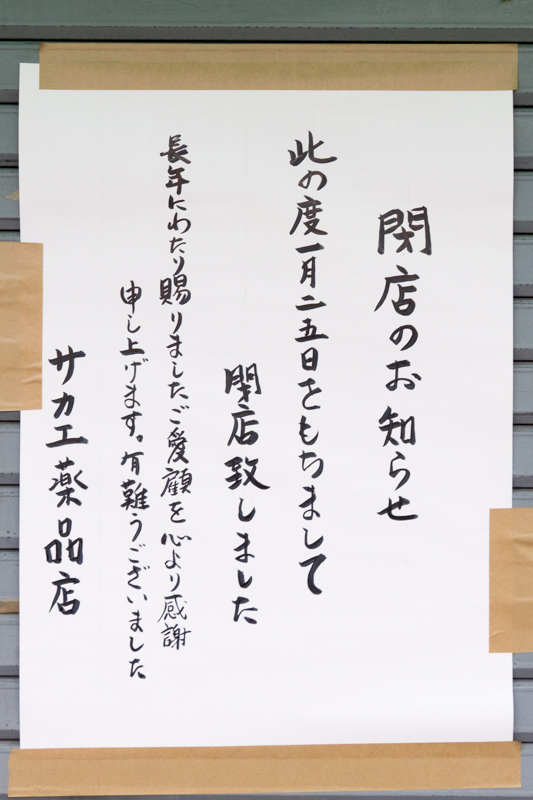 閉店のお知らせ
此の度一月二五日をもちまして
閉店致しました
長年にわたり賜りましたご愛顧を心より感謝
申し上げます。有難うございました
サカエ薬品店